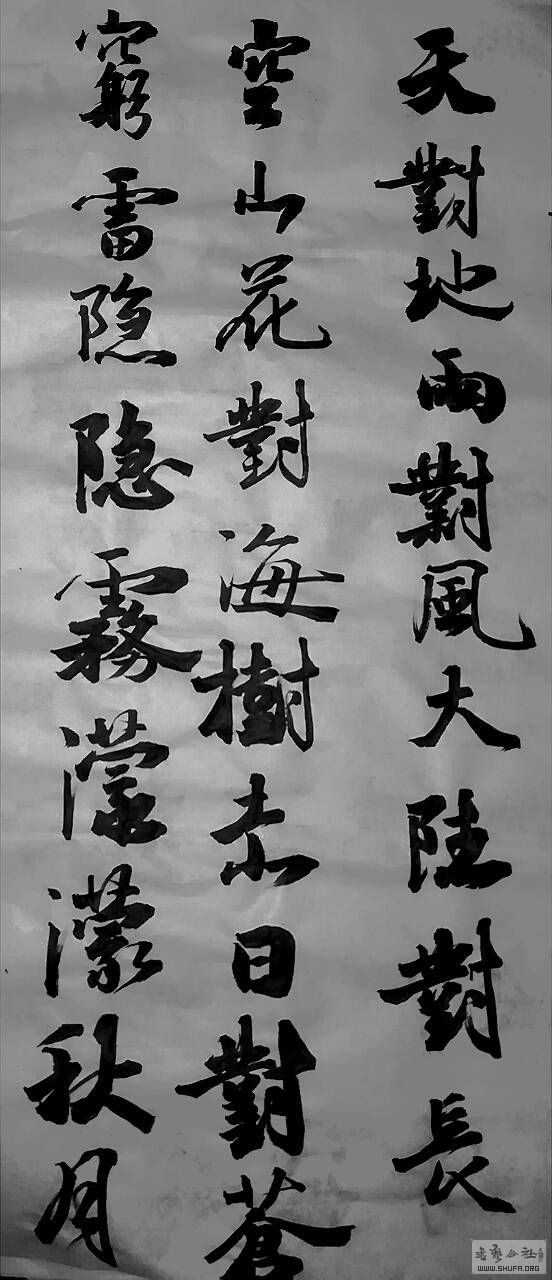 天對地雨對風大陸對長
空山花對海樹赤日對蒼
窮雷隐隐霧濛濛秋月
WWW.SHUFA.ORG